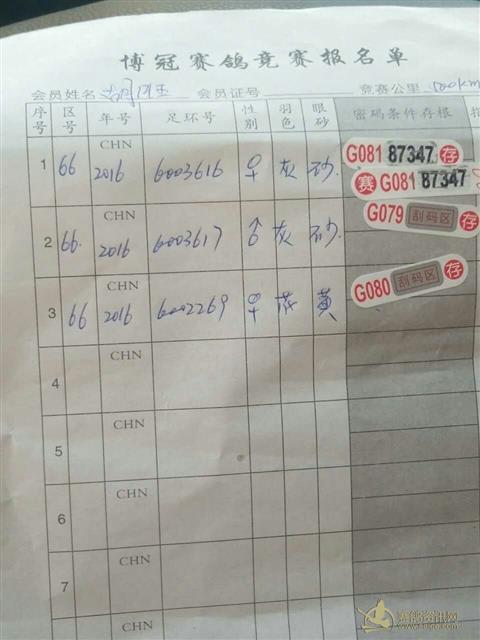 博冠赛鸽竞赛报名单
会员姓名 会员证号 竞赛公里 500km
序号 区号 年号 足环号 性别 羽色 眼砂 密码条件存根
1 66 CHN 2016 6003616 ♀ 灰 砂 G081 87347 存
赛 G081 87347
2 66 CHN 2016 6003617 ♂ 灰 砂 G079 刮码区 存
3 66 CHN 2016 6002269 ♀ 黄 G080 刮码区 存
4 CHN
5 CHN
6 CHN
7 CHN
CHN
赛鸽资讯网